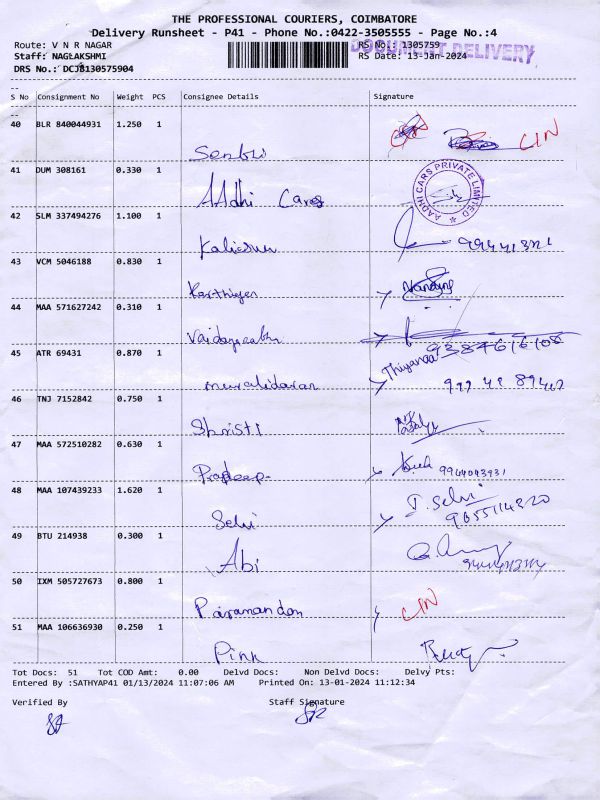 THE PROFESSIONAL COURIERS, COIMBATORE
Delivery Runsheet - P41 - Phone No.:0422-3505555 - Page No.:4
Route: V N R NAGAR RS No.: 1305759
DOCUMENT DELIVERY
Staff: NAGLAKSHMI RS Date: 13-Jan-2024
DRS No.: DCJB130575904
--
S No Consignment No Weight PCS Consignee Details Signature
--
40 BLR 840044931 1.250 1 CIN
41 DUM 308161 0.330 1
Adhi Cares
AADHI CARS PRIVATE LIMITED
42 SLM 337494276 1.100 1
43 VCM 5046188 0.830 1
Karthiyen
44 MAA 571627242 0.310 1
9384616108
45 ATR 69431 0.870 1
muralidaran
46 TNJ 7152842 0.750 1
Shristi
47 MAA 572510282 0.630 1
Pradeep 9944043931
48 MAA 107439233 1.620 1
Selvi T. Selvi
9655114320
49 BTU 214938 0.300 1
Abi
50 IXM 505727673 0.800 1
CIN
51 MAA 106636930 0.250 1
Pink
Tot Docs: 51 Tot COD Amt: 0.00 Delvd Docs: Non Delvd Docs: Delvy Pts:
Entered By :SATHYAP41 01/13/2024 11:07:06 AM Printed On: 13-01-2024 11:12:34
Verified By Staff Signature